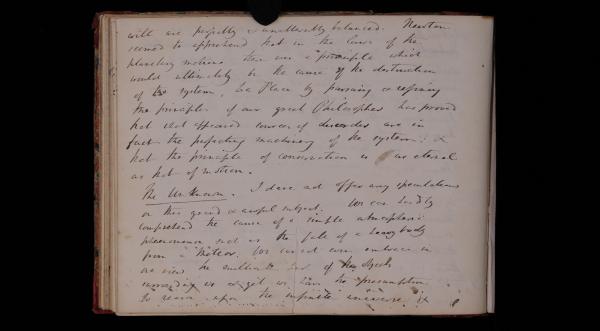 will are perfectly & unalterably balanced. Newton
seemed to apprehend that in the laws of the
planetary motions there was a principle which
would ultimately be the cause of the destruction
of the system, La Place by pursuing & refining
the principles of our great Philosopher has proved
that what appeared sources of disorder are in
fact the perfecting machinery of the system; &
that the principle of conservation is as eternal
as that of motion.
The Unknown. I dare not offer any speculations
on this grand & awful subject. We can hardly
comprehend the cause of a simple atmospheric
phenomenon such as the fall of a heavy body
from a meteor, we cannot even embrace in
one view the millionth part of the objects
surrounding us & yet we have the presumption
to reason upon the infinite universe &